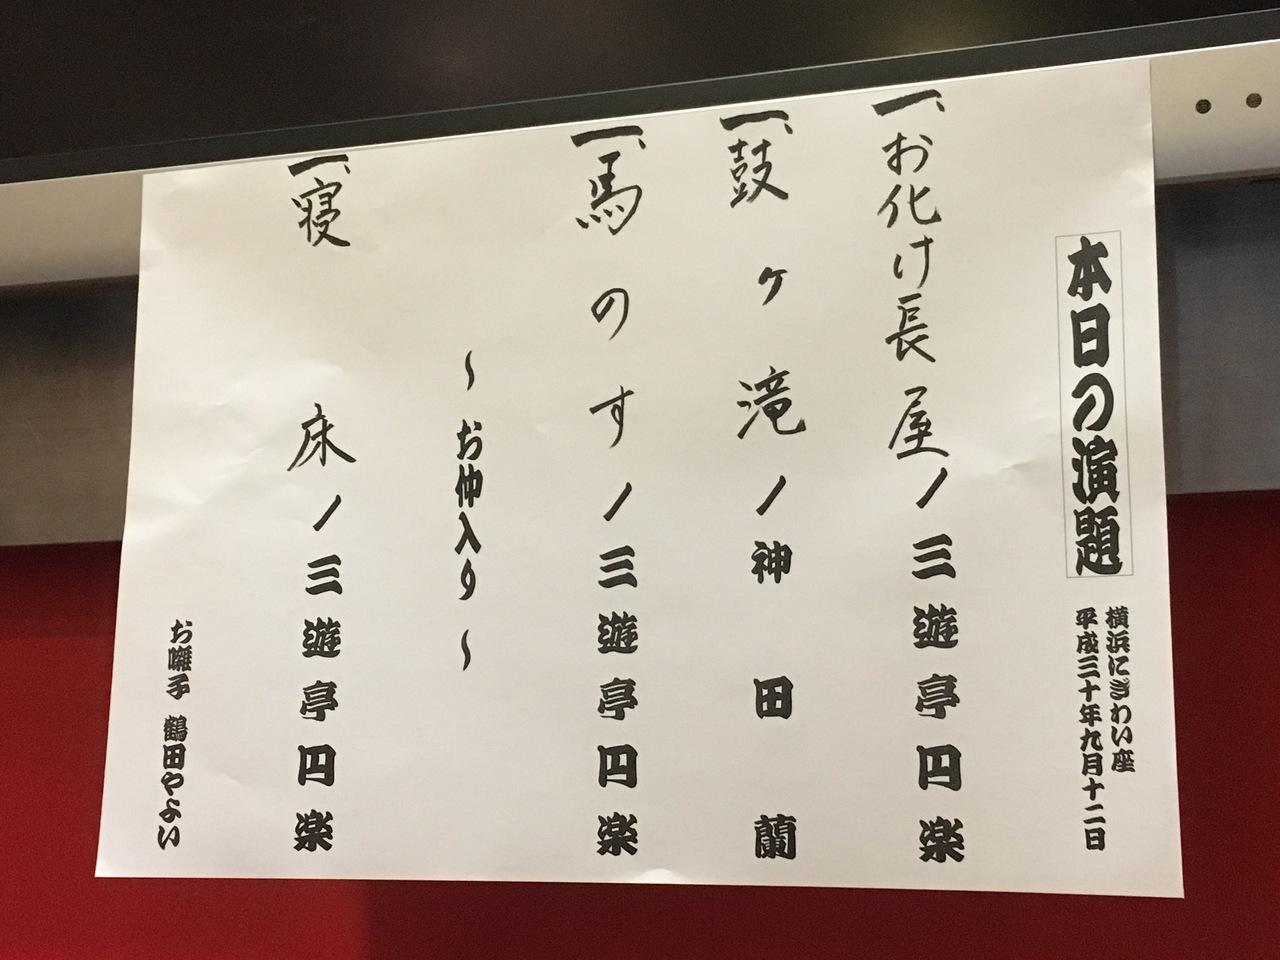 本日の演題
横浜にぎわい座
平成三十年九月十二日
一、お化け長屋ノ三遊亭円楽
一、鼓ヶ滝ノ神田蘭
一、馬のすノ三遊亭円楽
〜お仲入り〜
一、寝床ノ三遊亭円楽
お囃子 鶴田やよい